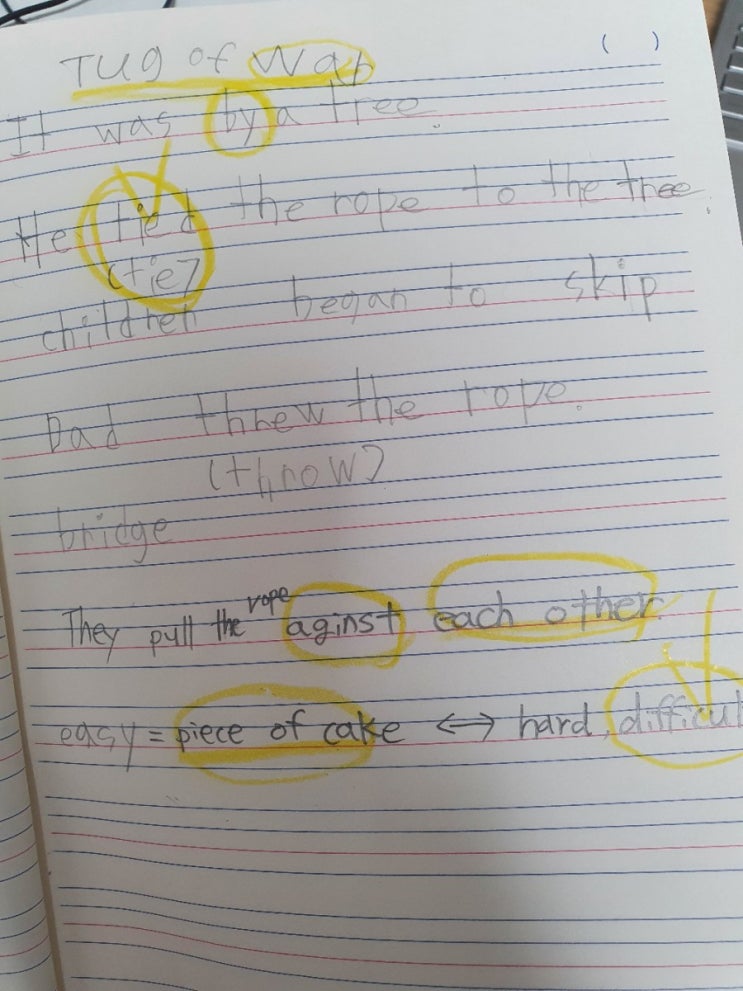 ( )
Tug of War
It was by a tree.
He tied the rope to the tree.
(tie)
children began to skip
Dad threw the rope.
(throw)
bridge
They pull the rope aginst each other.
easy = piece of cake ↔ hard, difficul